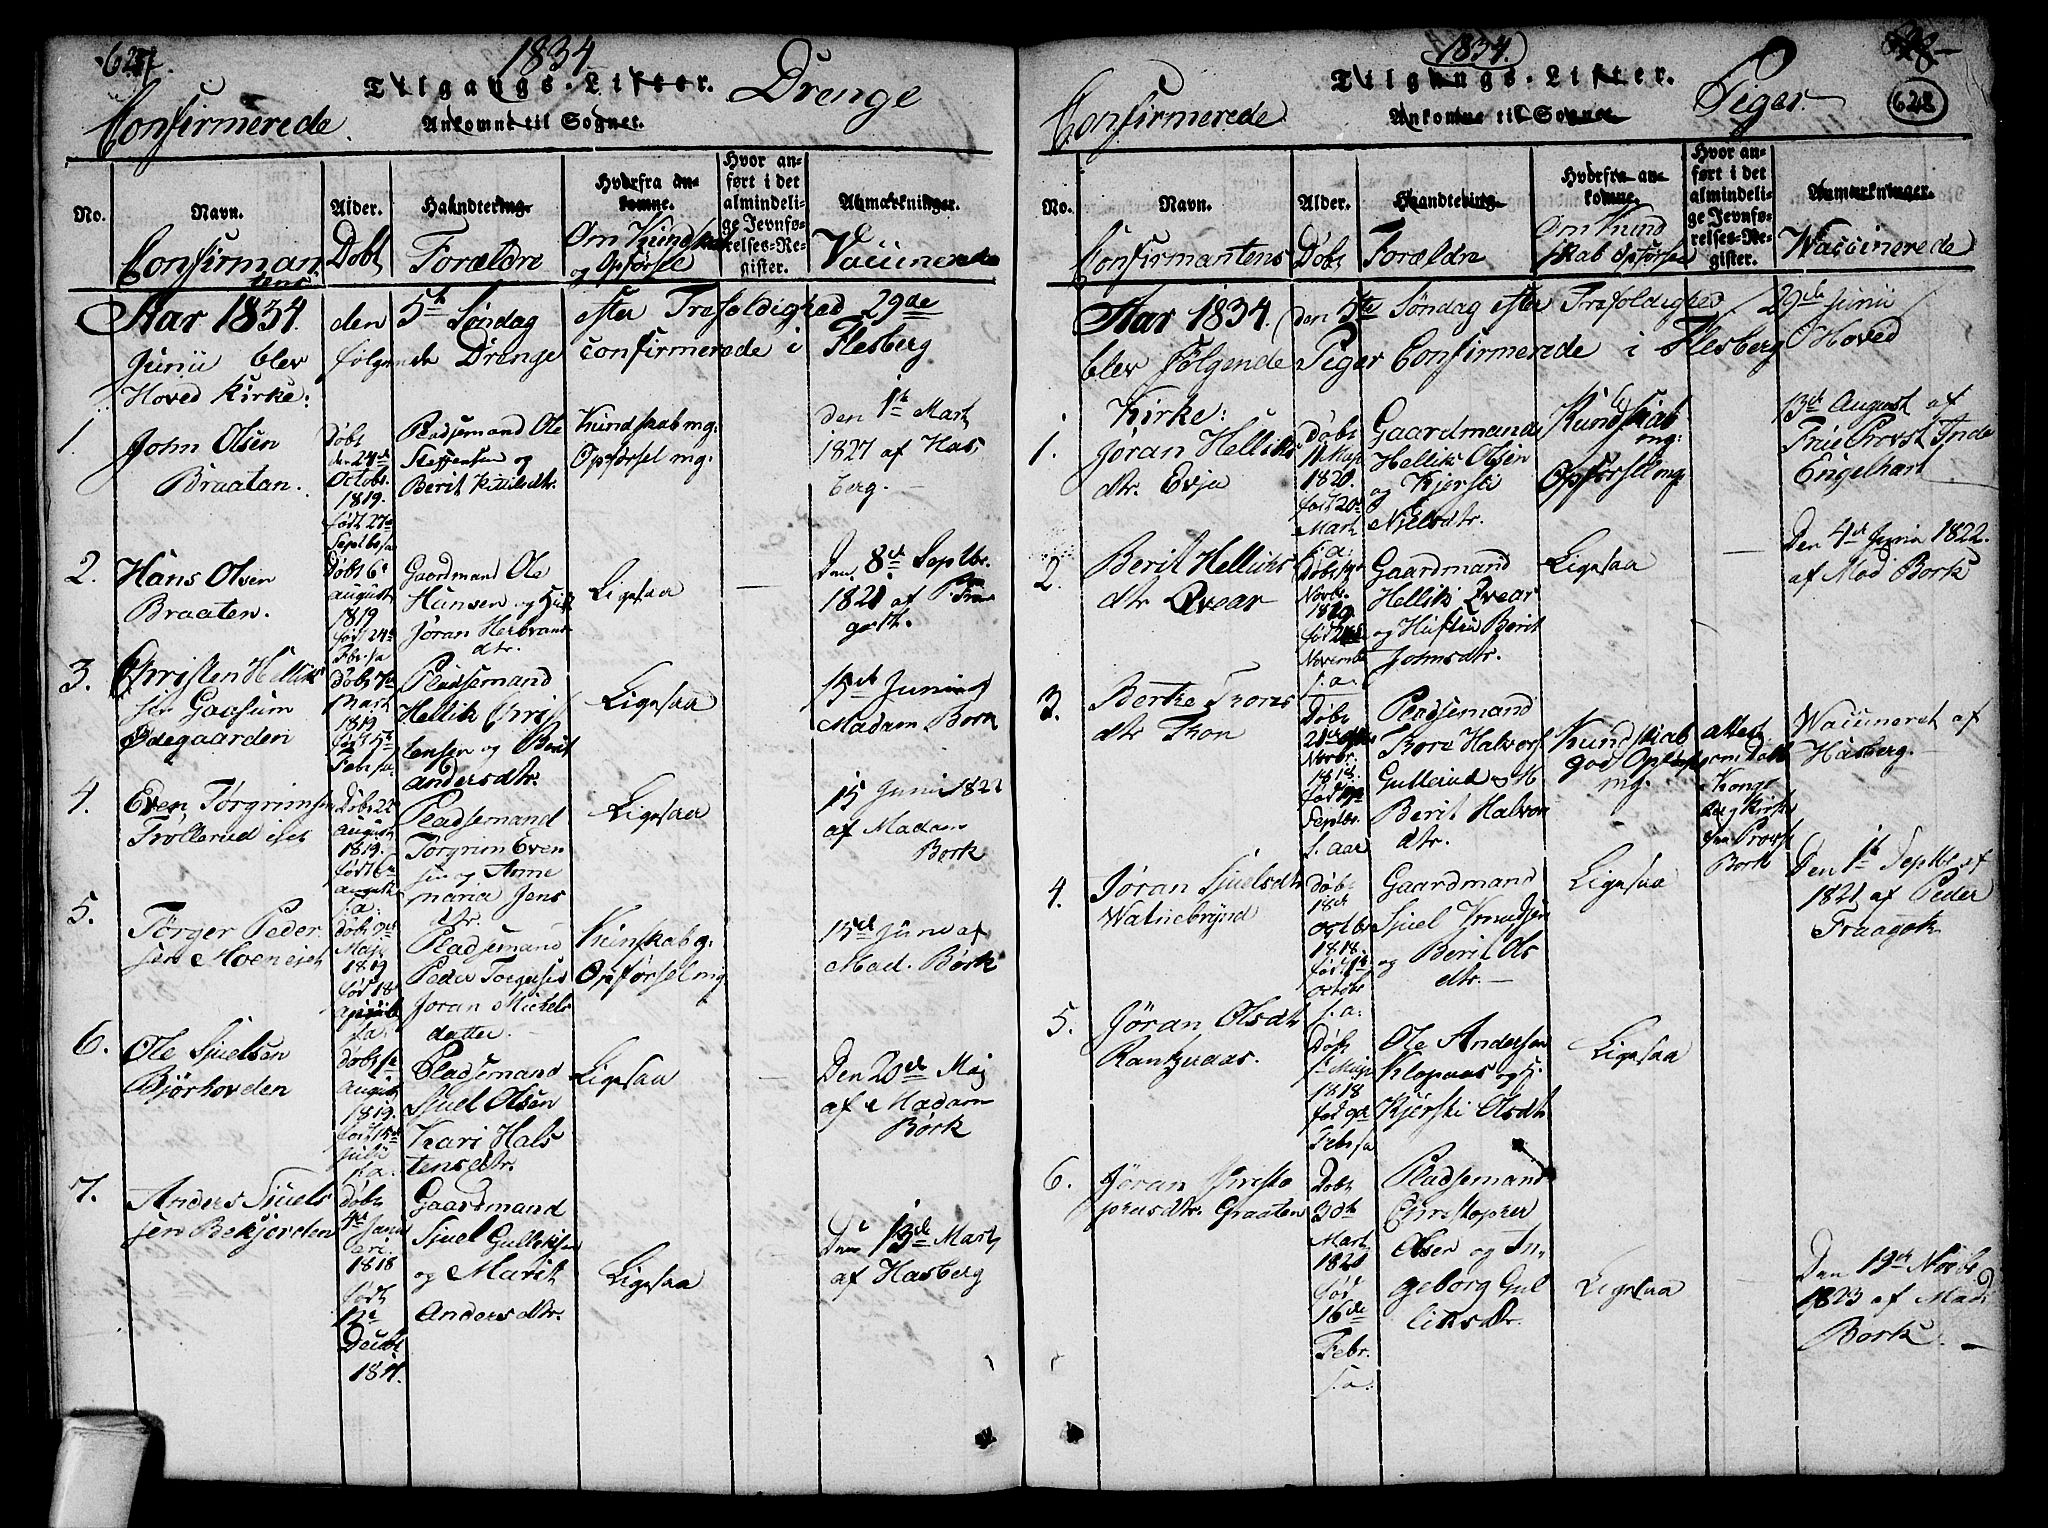 627.
1834
Tilgangs-Lister.
Drenge
Confirmerede
Ankomne til Sognet.
No.
Navn.
Confirman
tens
Alder.
Døbt
Haandtering.
Forældre
Hvorfra an-
komne.
Om Kundskab
og Opførsel
Hvor an-
ført i det
almindeli-
ge Jevnfø-
relses-Re-
gister.
Anmærkninger.
Vaccinerede
Aar 1834. den 5te Søndag efter Trefoldighed 29de
Junii blev følgende Drenge confirmerede i Flesberg
Hoved Kirke:
1.
John Olsen
Braatan.
Døbt
den 24de
Octobr.
1819.
født 27de
Septbr. s.a.
Pladsemand Ole
Steffensen og
Berit Kittilsdtr.
Kundskab mg:
Opførsel mg:
den 1te Mart
1827 af Has,
berg.
2.
Hans Olsen
Braaten.
Døbt 6te
august
1819
født 24de
Fbr. s.a.
Gaardmand Ole
Hansen og
Jøran Herbrands
dtr.
Ligesaa
Den 8de Septbr.
1821 af
3.
Christen Helliks
sen Gaasum
Ødegaarden
Døbt 7de
Mart
1819
født 5te
Febr. s.a.
Pladsemand
Hellik Chris
tensen og Berit
andersdtr.
Ligesaa
15de Junii af
Madam Bork
4.
Even Torgrimsen
Trollerud eiet
Døbt 22
august
1819.
født 6te
august
s.a.
Pladsemand
Torgrim Even
sen og Anne
maria Jens
dtr.
Ligesaa
15 Junii 1822
af Madam
Bork
5.
Torger Peder
sen Moen eiet
døbt
Maji
1819
født 18
april
s.a.
Pladsemand
Peder Torgersen
Joran Mickels
datter.
Kunskab g:
Opførsel mg
15de Juni af
Mad. Børk
6.
Ole Sjuelsen
Bjørhovden
Døbt 1te
August
1819.
født 15de
Julii
s.a.
Pladsemand
Sjuel Olsen
Kari Hals
tensdtr.
Ligesaa
Den 20de Maj
af Madam
Børk
7.
Anders Sjuels
sen Bekjorden
Døbt
4de Janu
arii
1818
født
12te
Decbr.
1817.
Gaardmand
Sjuel Gulliksen
og Marit
Andersdtr.
Ligesaa
Den 13de Mart
af Hasberg
628
1834.
Tilgangs-Lister.
Piger
628
Confirmerede
Ankomne til Sognet.
No.
Navn.
Confirmantens
Alder.
Døbt
Haandtering.
Forældre
Hvorfra an-
komne.
Om Kund
skab Opførsel
Hvor an-
ført i det
almindeli-
ge Jevnfø-
relses-Re-
gister.
Anmærkninger.
Vaccinerede
Aar 1834. den 5te Søndag efter Trefoldighed 29de Junii
blev Følgende Piger Confirmerede i Flesberg Hoved
Kirke:
1.
Jøran Helliks
dtr. Evju
Døbt
11 Maji
1820.
født 20de
Mart
s.a.
Gaardmand
Hellik Olsen
og Kjersti
Nielsdtr.
Kundskab
mg:
Opførsel mg
13de August af
Frue Provst Inde
Engelhart
2.
Berit Helliks
dtr Qvear
Døbt
Novbr.
1819
født
Novembr
s.a.
Gaardmand
Hellik Qvear
og Hustru Berit
Johnsdtr.
Ligesaa
Den 4de Junii 1822.
af Mad Bork
3.
Berthe Thores
dtr Thon
Døbt
21de
Novbr.
1818.
født
Septbr.
s. aar
Pladsemand
Thore Halvors.
Gullerud og H.
Berit Halvors
dtr.
Kundskab
god Opførsel
mg.
attest
om Daab
Kongs
berg Kirke
fra Provst
Bork
Vaccineret af
Hasberg.
4.
Jøran Sjuelsdtr
Walnebrynd
Døbt
18de
octbr
1818.
født 1te
octobr
s.a.
Gaardmand
Sjuel Knudsen
og Berit Ols
dtr.
Ligesaa
Den 1te Septbr. af
1821 af Peder
Fraagot
5.
Jøran Olsdtr
Døbt
1te Maji
1818
født 9de
Febr. s.a.
Ole Andersen
Klopaas og H.
Kjersti Olsdtr
Ligesaa
6.
Jøran Christo
phersdtr. Graaten
Døbt
30te
Mart
1820
født
16de
Febr.
s.a.
Pladsemand
Christopher
Olsen og In,
geborg Gul
liksdtr.
Ligesaa
Den 19de Novbr.
1823 af Mad
Bork.